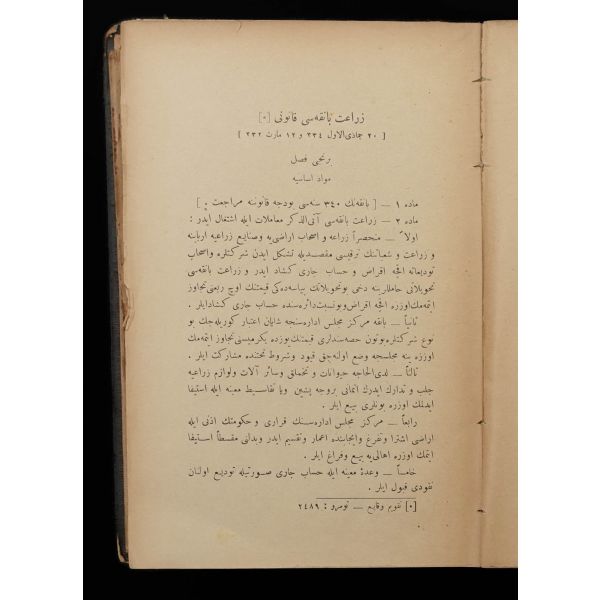 زراعت بانقه‌سی قانونی [٠]
[ ٢٠ جماذی‌الاول ٣٣٤ و ١٢ مارت ٣٣٢ ]
برنجی فصل
مواد اساسیه
ماده ١ — [ بانقه‌نك ٣٤٠ سنه‌سی بودجه قانوننه مراجعت . ]
ماده ٢ — زراعت بانقه‌سی آتی‌الذكر معاملات ایله اشتغال ایدر :
اولا — منحصراً زراعه و اصحاب اراضی‌یه و صنایع زراعیه اربابنه
و زراعت و شعباتنك ترقیسی مقصدیله تشكل ایدن شركتلره و اصحاب
تودیعاته آقچه اقراض و حساب جاری كشاد ایدر و زراعت بانقه‌سی
تحویلاتی حاملرینه دخی بو تحویلاتك پیاسه‌ده‌كی قیمتنك اوچ ربعنی تجاوز
ایتمه‌مك اوزره آقچه اقراض و بو نسبت دائره‌سنده حساب جاری كشاد ایلر .
ثانیاً — بانقه مركز مجلس اداره‌سنجه شایان اعتبار كوریله‌جك بو
نوع شركتلره بوتون حصه سندلری قیمتنك یوزده یكرمیسنی تجاوز ایتمه‌مك
اوزره ینه مجلسجه وضع اوله‌جق قیود و شروط تحتنده مشاركت ایلر .
ثالثاً — لدی‌الحاجه حیوانات و تخملق و سائر آلات و لوازم زراعیه
جلب و تدارك ایدرك اثمانی بروجه پیشین ویا تقاسیط معینه ایله استیفا
ایدلمك اوزره بونلری بیع ایلر .
رابعاً — مركز مجلس اداره‌سنك قراری و حكومتك اذنی ایله
اراضی اشترا و تفرغ و ایجابنده اعمار و تقسیم ایدر و بدلنی مقسطاً استیفا
ایتمك اوزره اهالی‌یه بیع و فراغ ایلر .
خامساً — وعدهٔ معینه ایله حساب جاری صورتیله تودیع اولنان
نقودی قبول ایلر .
[٠] تقویم وقایع — نومرو : ٢٤٨٩